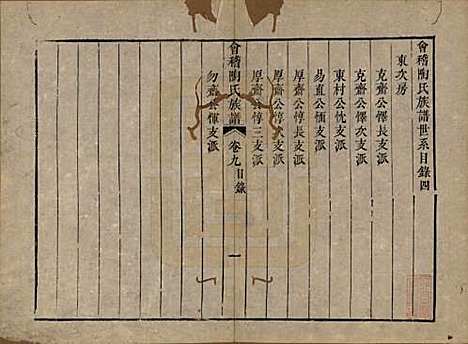 會稽陶氏族譜世系目錄四
東次房
克齋公懌長支派
克齋公懌次支派
東村公忱支派
易直公愐支派
厚齋公惇長支派
厚齋公惇次支派
厚齋公惇三支派
會稽陶氏族譜 卷九目錄 一
勿齋公惲支派